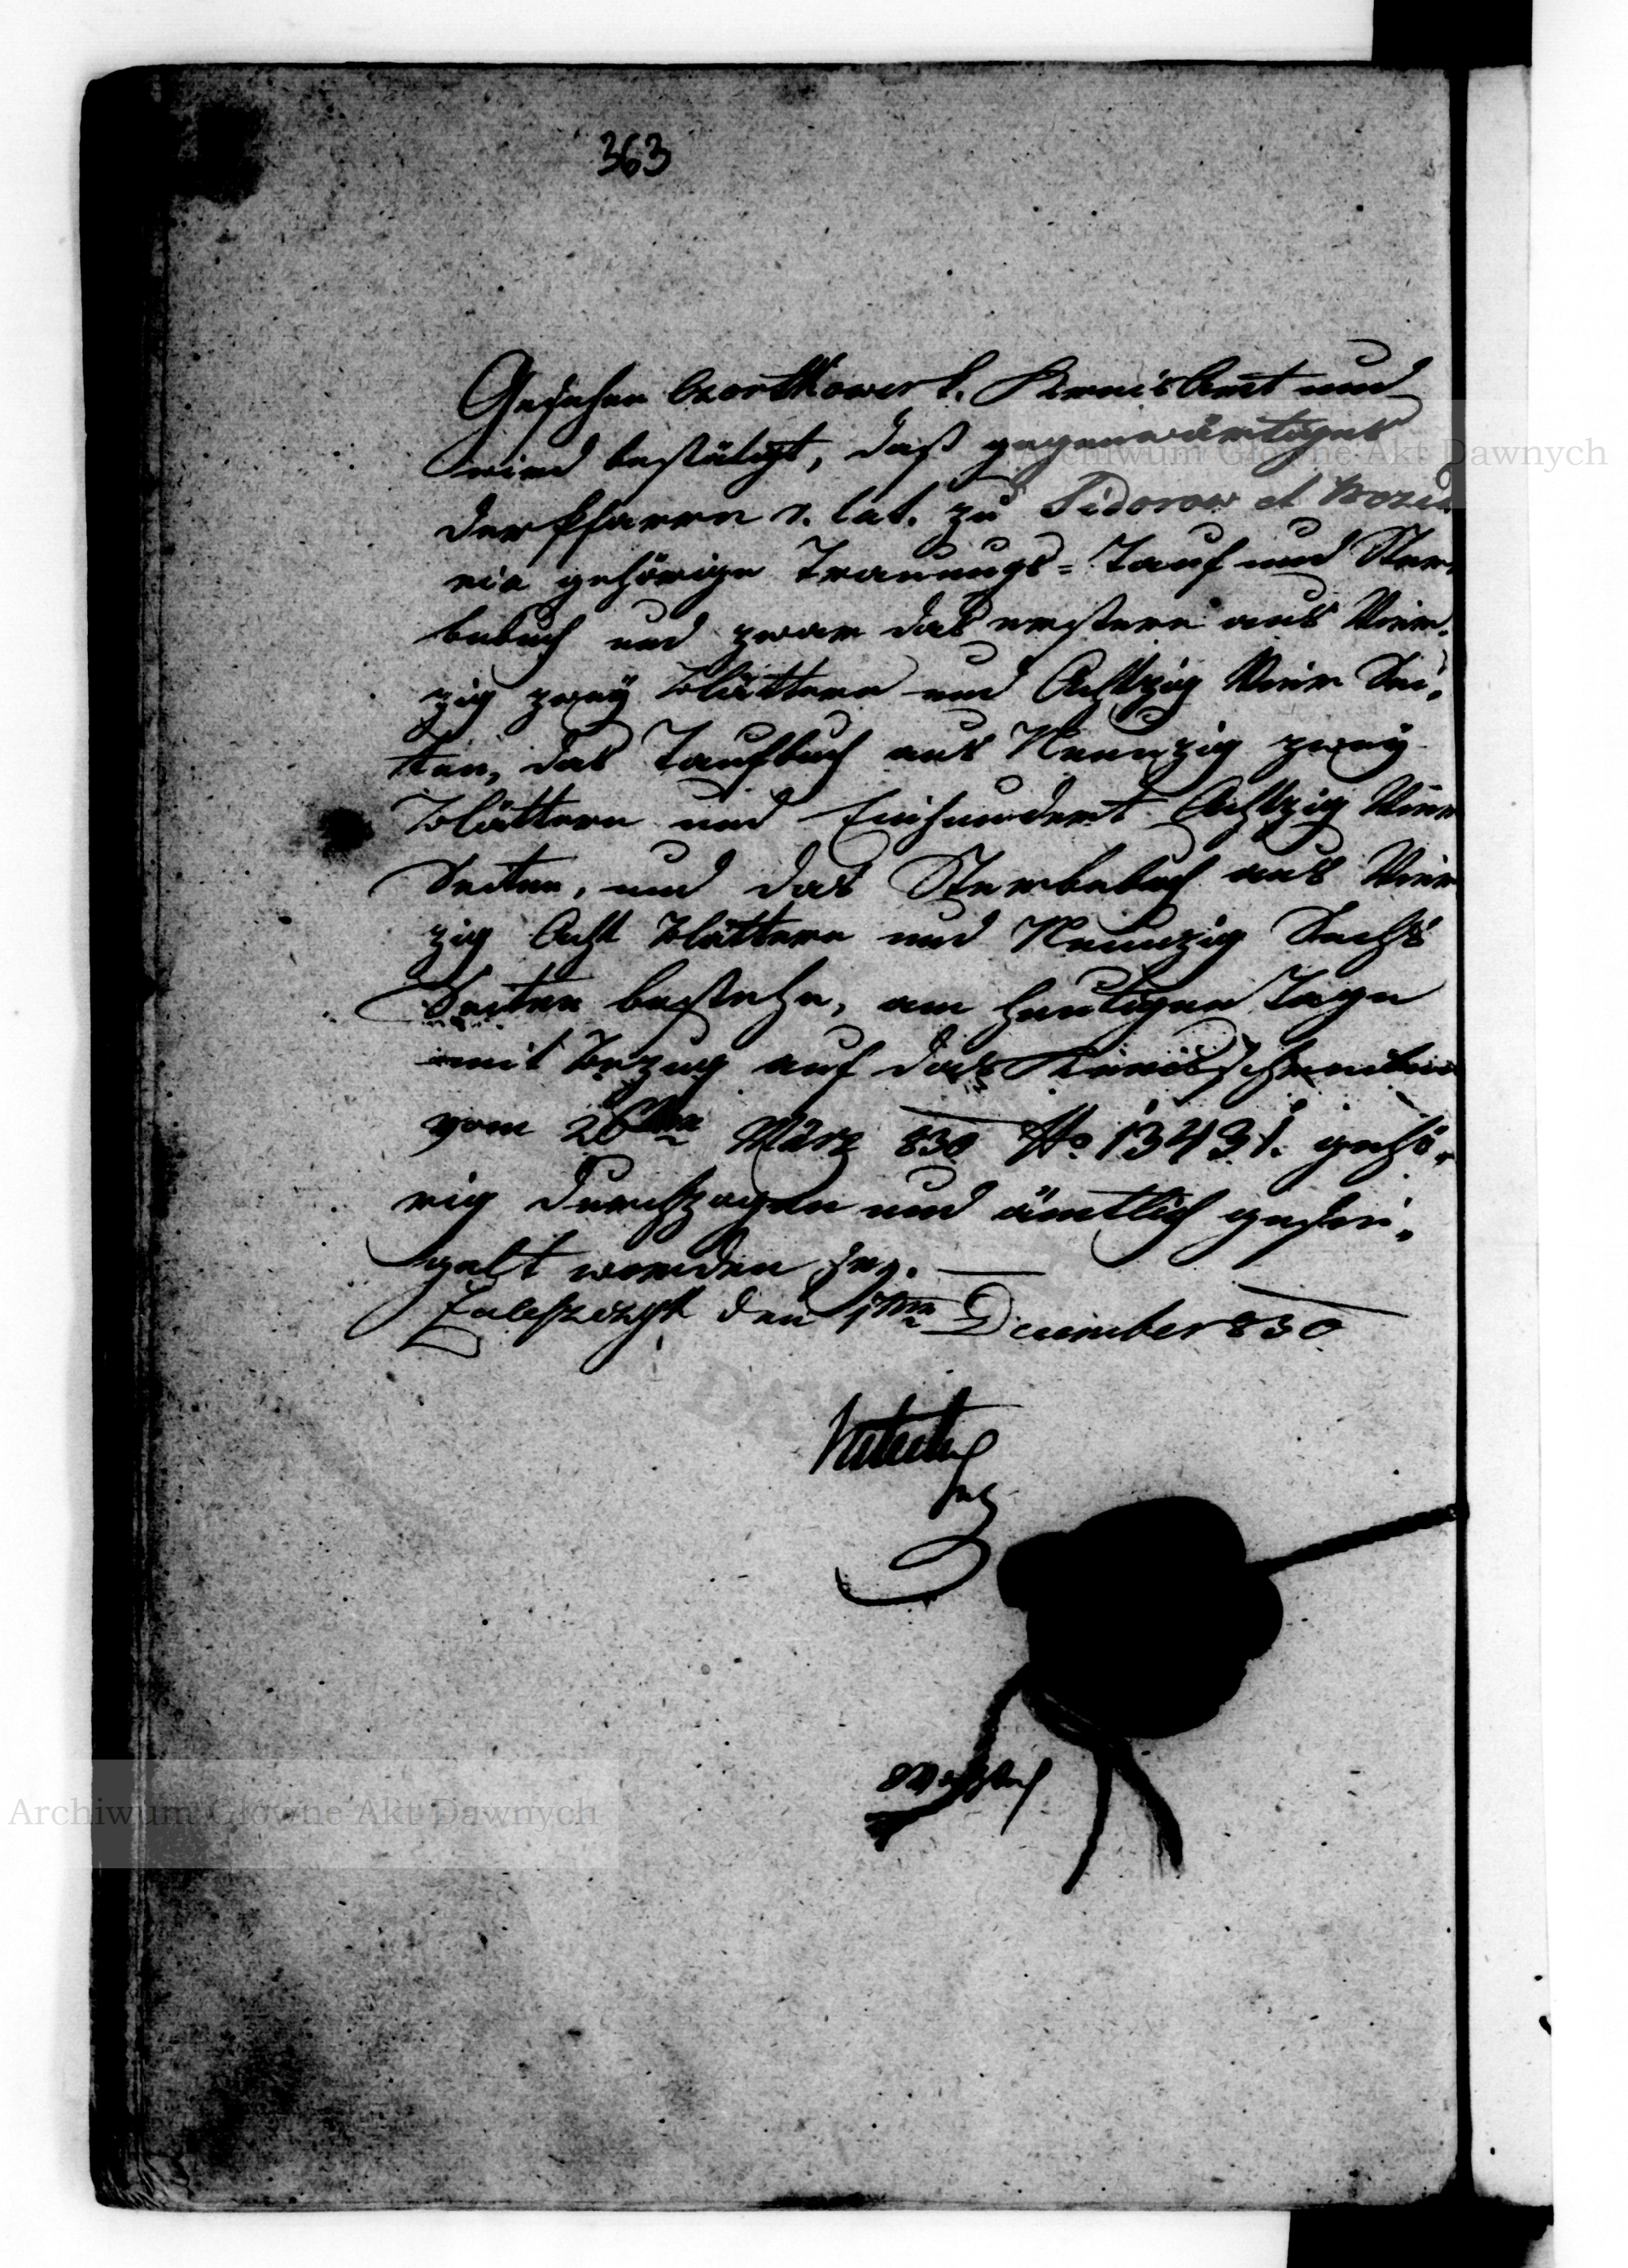 363
Gesehen Czortkower k. Kreis Amt und
wird bestätigt, daß gegenwärtiges
der Pfarre r. lat. zu Sidorow et Wozie
nia gehörige Trauungs- Tauf und Ster-
bebuch und zwar das erstere aus Vier-
zig zwey Blättern und Achtzig Vier Sei-
ten, das Taufbuch aus Neunzig zwey
Blättern und Einhundert Achtzig Vier
Seiten, und das Sterbebuch aus Vier
zig Acht Blättern und Neunzig Sechs
Seiten bestehe, am heutigen Tage
mit Bezug auf das Kreisschreiben
vom 26ten März 830 No 13431. gehö-
rig durchzogen und ämtlich gesie-
gelt worden sey.
Zaleszczyk den 1ten December 830
Archiwum Główne Akt Dawnych
Archiwum Główne Akt Dawnych